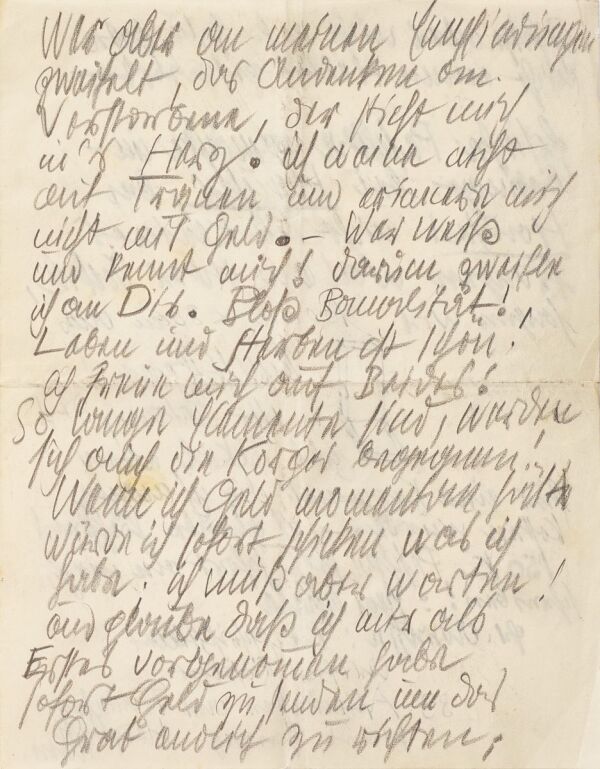 Wer aber an meinen Empfindungen
zweifelt, das Andenken am.
Verstorbene, der sticht mich
in's Herz. ich weine nicht
mit Tränen und erinnere mich
nicht mit Geld. – Wer weiß
und kennt mich! darum zweifle
ich an Dir. Bloß Banalität!
Leben und Sterben ist schön!
ich freue mich auf Beides!
So lange Elemente sind, werden
sich auch die Körper begegnen!
Wenn ich Geld momentan hätte
würde ich sofort schicken was ich
habe. ich muß aber warten!
und glaube daß ich mir als
Erstes vorgenommen habe
sofort Geld zu senden um das
Grab endlich zu richten.